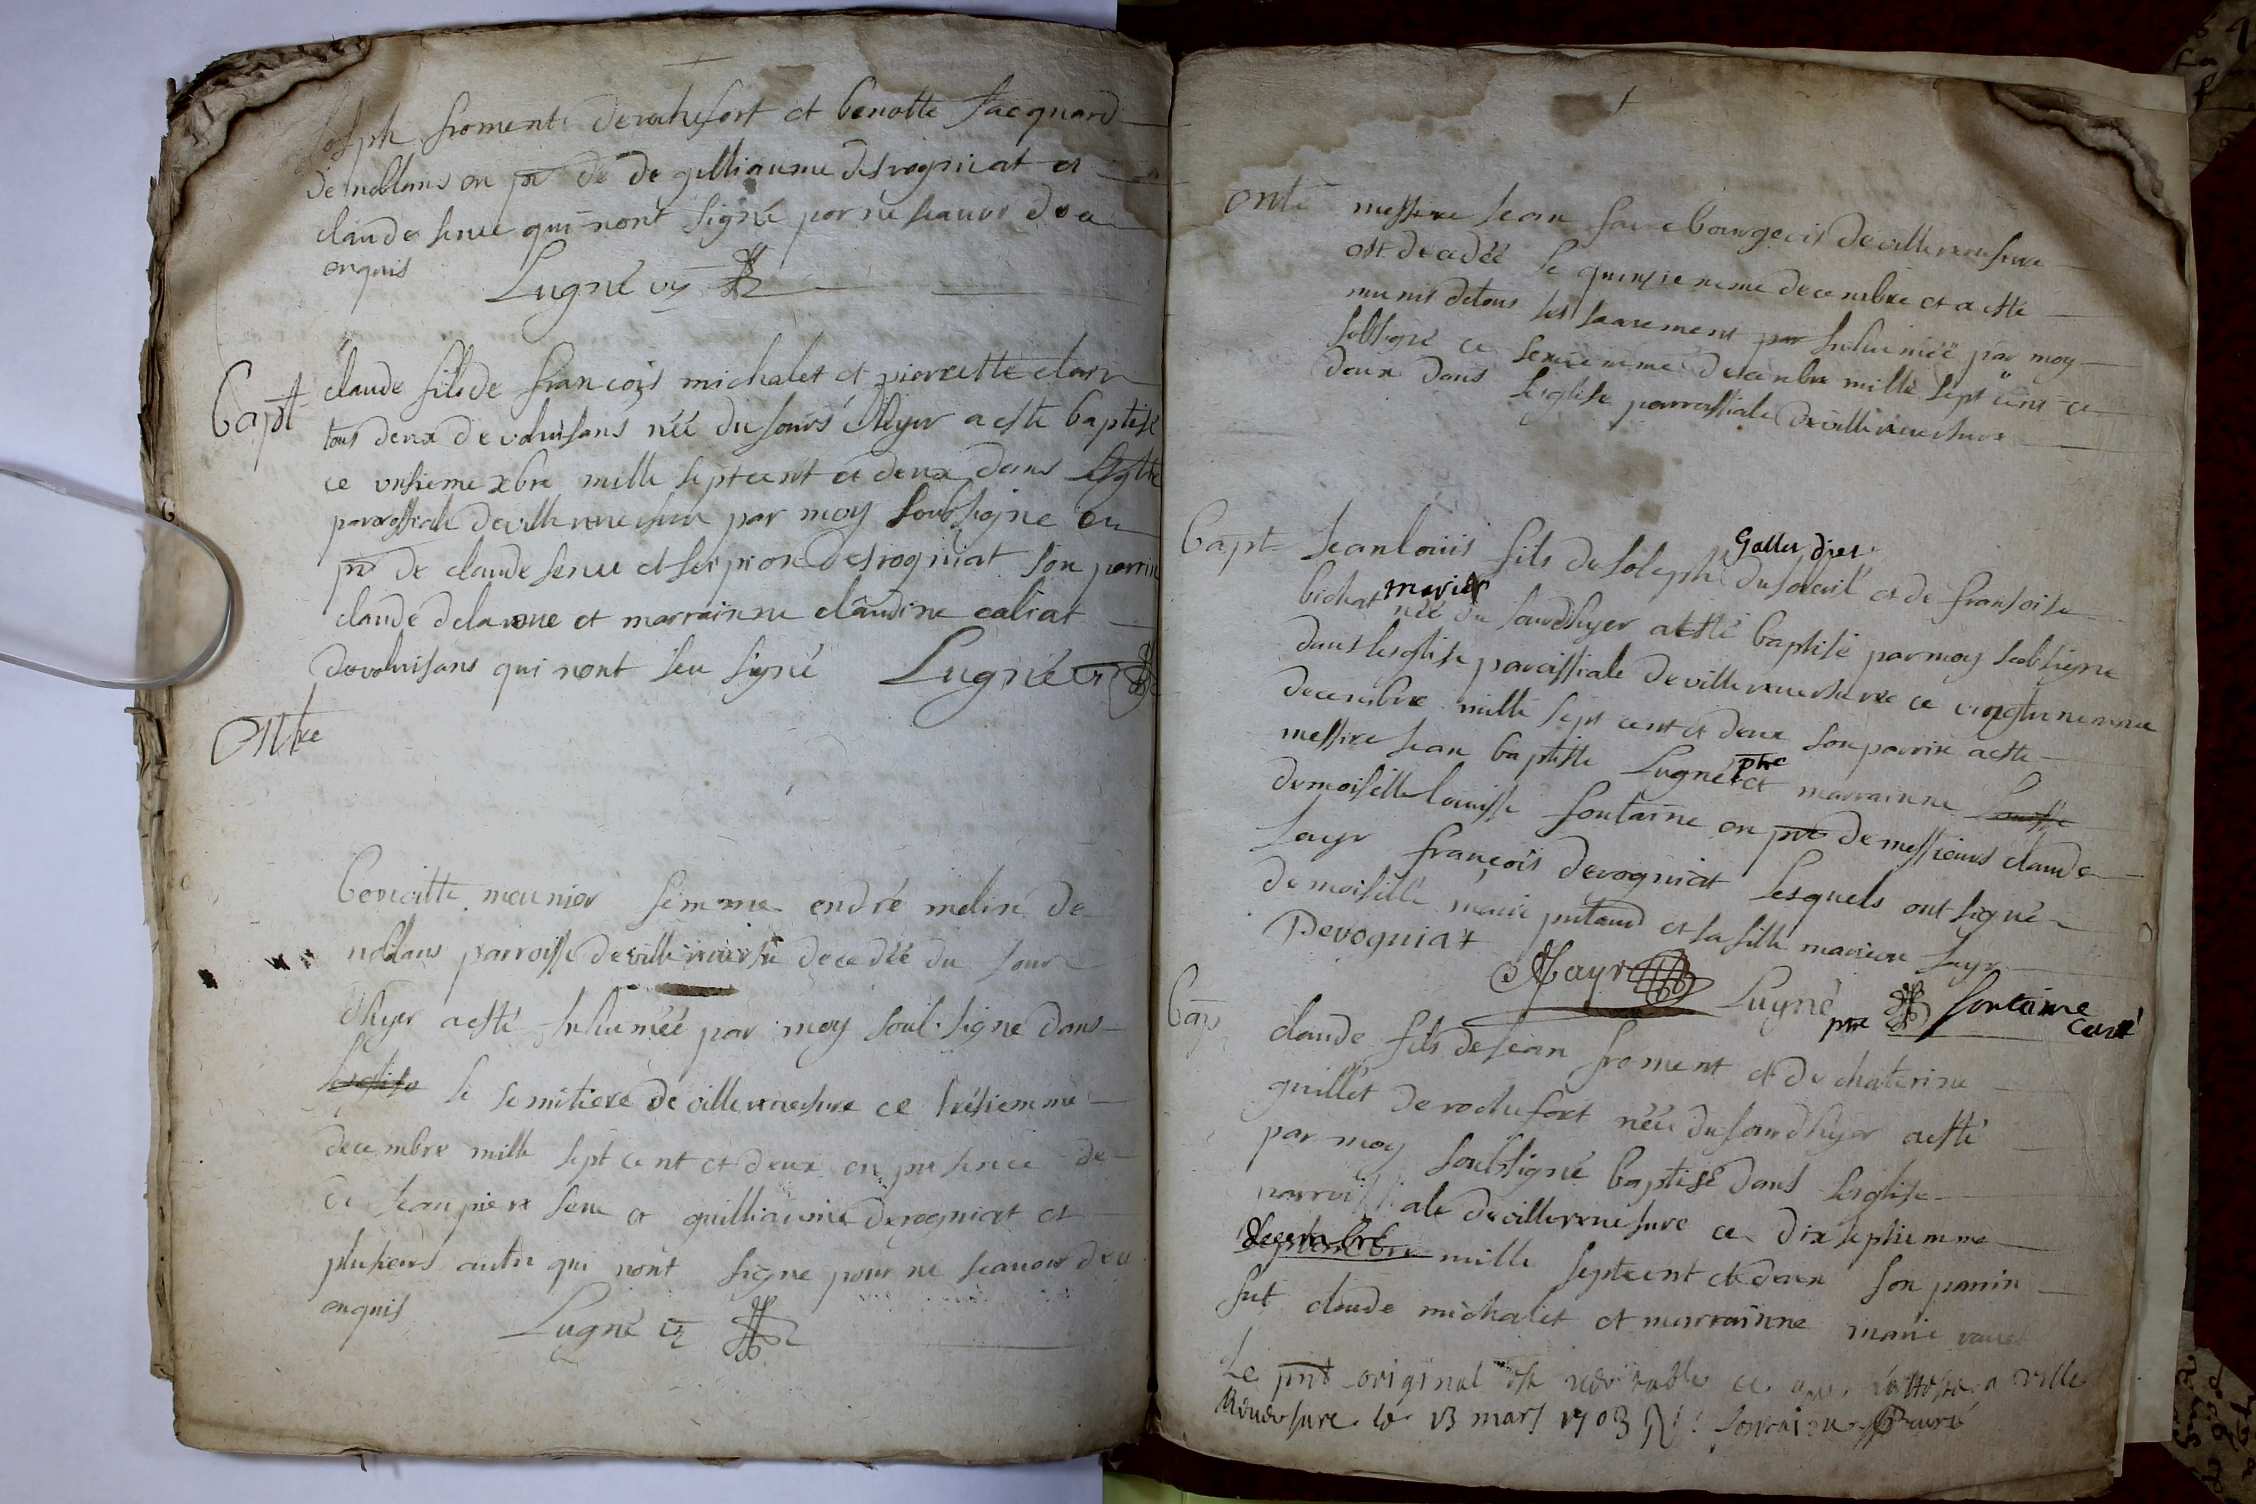 Joseph froment de rochefort et benoitte Jacquard
de noblans en pn̄ de de gulliaume desvogniat et
claude senve qui nont signé por ne scavoir de ce
enquis Lugné vy
Bapt claude fils de francois michalet et pierrette clerc
tous deux de voluisans néé du jours d'hyer a esté baptisé
ce unsieme xbre mille sept cent et deux dans l'eglise
parrossiale de villereversure par moy soubsigne en
pn̄ de claude senve et desrogniat son parrin
claude delarue et marrainne claudine caliat
devoluisans qui nont sceu signé Lugné vy
Mtre
benoitte meunier femme endré meliné de
noblans parroisse de villereversure decedéé du jour
d'hyer a esté Inhuméé par moy soubsigné dans
lesglise le semitiere de villereversure ce trésiemme
decembre mille sept cent et deux en presence de
de Jean piere senve et guilliaume derogniat et
plusieurs autre qui nont signe pour ne scauoir de ce
enquis Lugné vy
messire Jean bourgeois de villereversure
est decedéé le quinsiememe decembre et a esté
munis de tous les sacrement par Inhuméé par moy
soubsigné ce sexiememe decembre mille sept cent et
deux dans lesglise parrossiale de villereversure
Bapt Jean louiis fils de Joseph galler dit dusoleuil et de fransoise
bichat mariés néé du jourdhyer a esté baptisé par moy soubsigne
dans lesglise paroissiale de villereversure ce vingtunemme
decembre mille sept cent et deux son parrin a esté
messire Jean baptiste Lugné ptre et marrainne Louisse
demoiselle louisse fontaine en pn̄ce de messieurs claude
Jayr françois devogniat lesquels ont signé
demoiselle marie putaud et sa fille marion Jayr
Devogniat Jayr Lugné ptre fontaine curé
Bap claude fils de Jean froment et de chaterine
guillet de rochefort néé du jourdhyer a esté
par moy soubsigné baptisé dans lesglise
parroissiale de villereversure ce dixseptiemme
decembre mille sept cent et deux son parrin
fut claude michalet et marrainne marie
Le pnt original est veritable ce que j'atteste a ville
Reversure le 13 mars 1703 fontaine curé